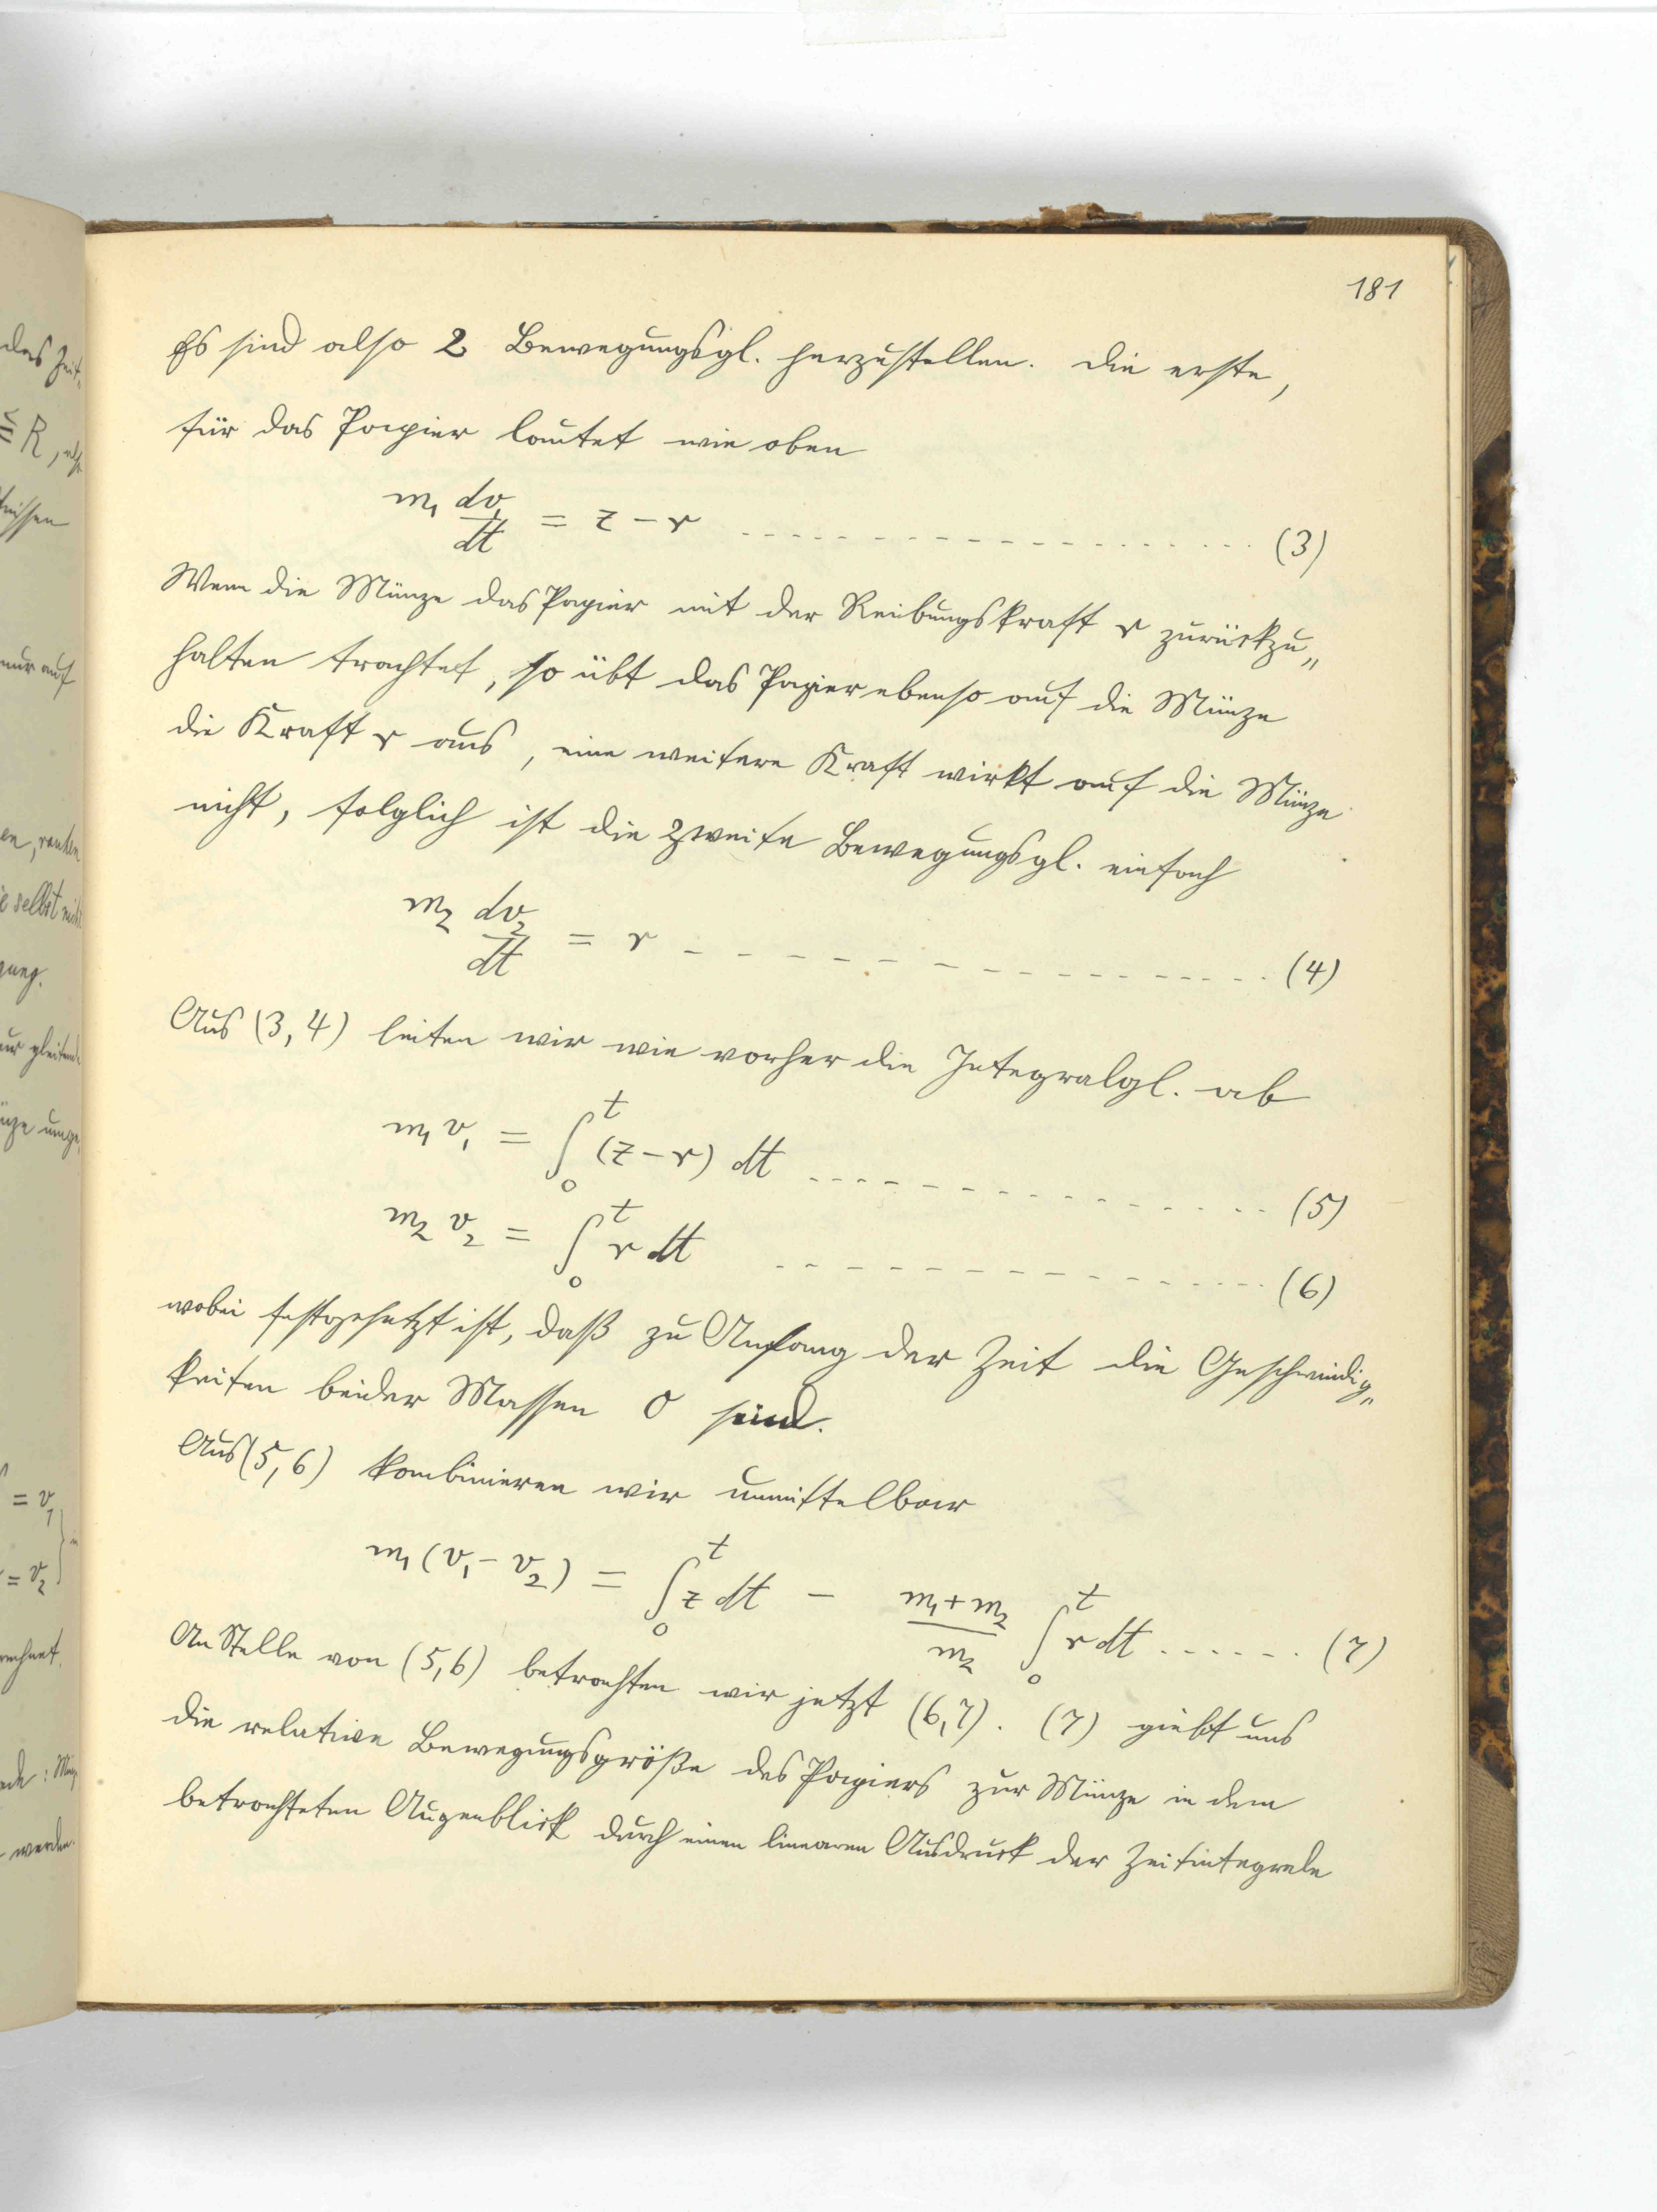 das Zeit-
≦ R, also
nur auf
selbst nicht
gung.
= v₁
= v₂
rechnet.
werden.
181
Es sind also 2 Bewegungsgl. herzustellen. Die erste,
für das Papier lautet wie oben
m₁ dv₁/dt = z − r - - - - - - - - - - - - - - - - - (3)
Wenn die Münze das Papier mit der Reibungskraft r zurückzu„
halten trachtet, so übt das Papier ebenso auf die Münze
die Kraft r aus, eine weitere Kraft wirkt auf die Münze
nicht, folglich ist die zweite Bewegungsgl. einfach
m₂ dv₂/dt = r - - - - - - - - - - - - - - - - - (4)
Aus (3, 4) leiten wir wie vorher die Integralgl. ab
m₁ v₁ = ∫₀ᵗ (z − r) dt - - - - - - - - - - - - - - (5)
m₂ v₂ = ∫₀ᵗ r dt - - - - - - - - - - - - - - - (6)
wobei festgesetzt ist, daß zu Anfang der Zeit die Geschwindig„
keiten beider Massen 0 sind.
Aus (5, 6) kombinieren wir unmittelbar
m₁ (v₁ − v₂) = ∫₀ᵗ z dt − (m₁ + m₂)/m₂ ∫₀ᵗ r dt - - - - - - (7)
An Stelle von (5, 6) betrachten wir jetzt (6, 7). (7) giebt uns
die relative Bewegungsgröße des Papiers zur Münze in dem
betrachteten Augenblick durch einen linearen Ausdruck der Zeitintegrale